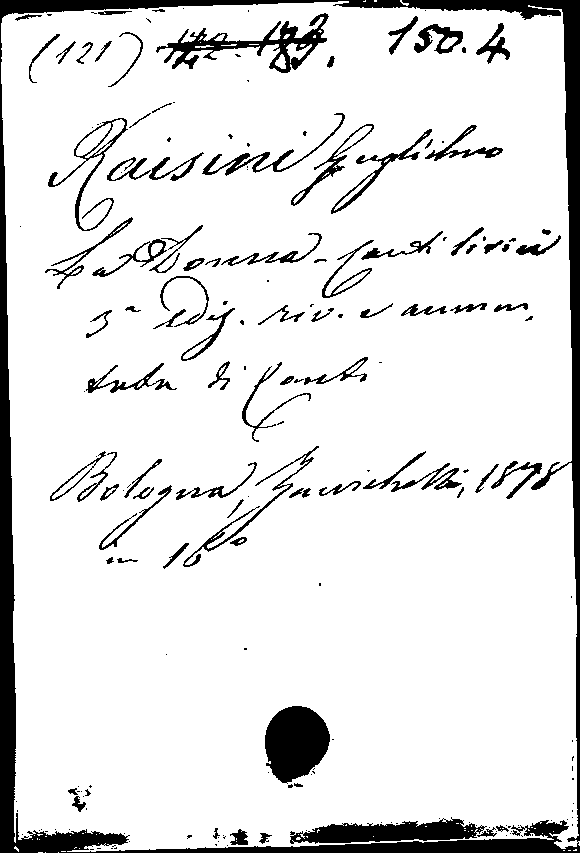 (121) 150.4
Raisini Guglielmo
La Donna - Canti lirici
3a ediz. riv. e aumen-
tata di Canti
Bologna, Zanichelli, 1878
in 16°